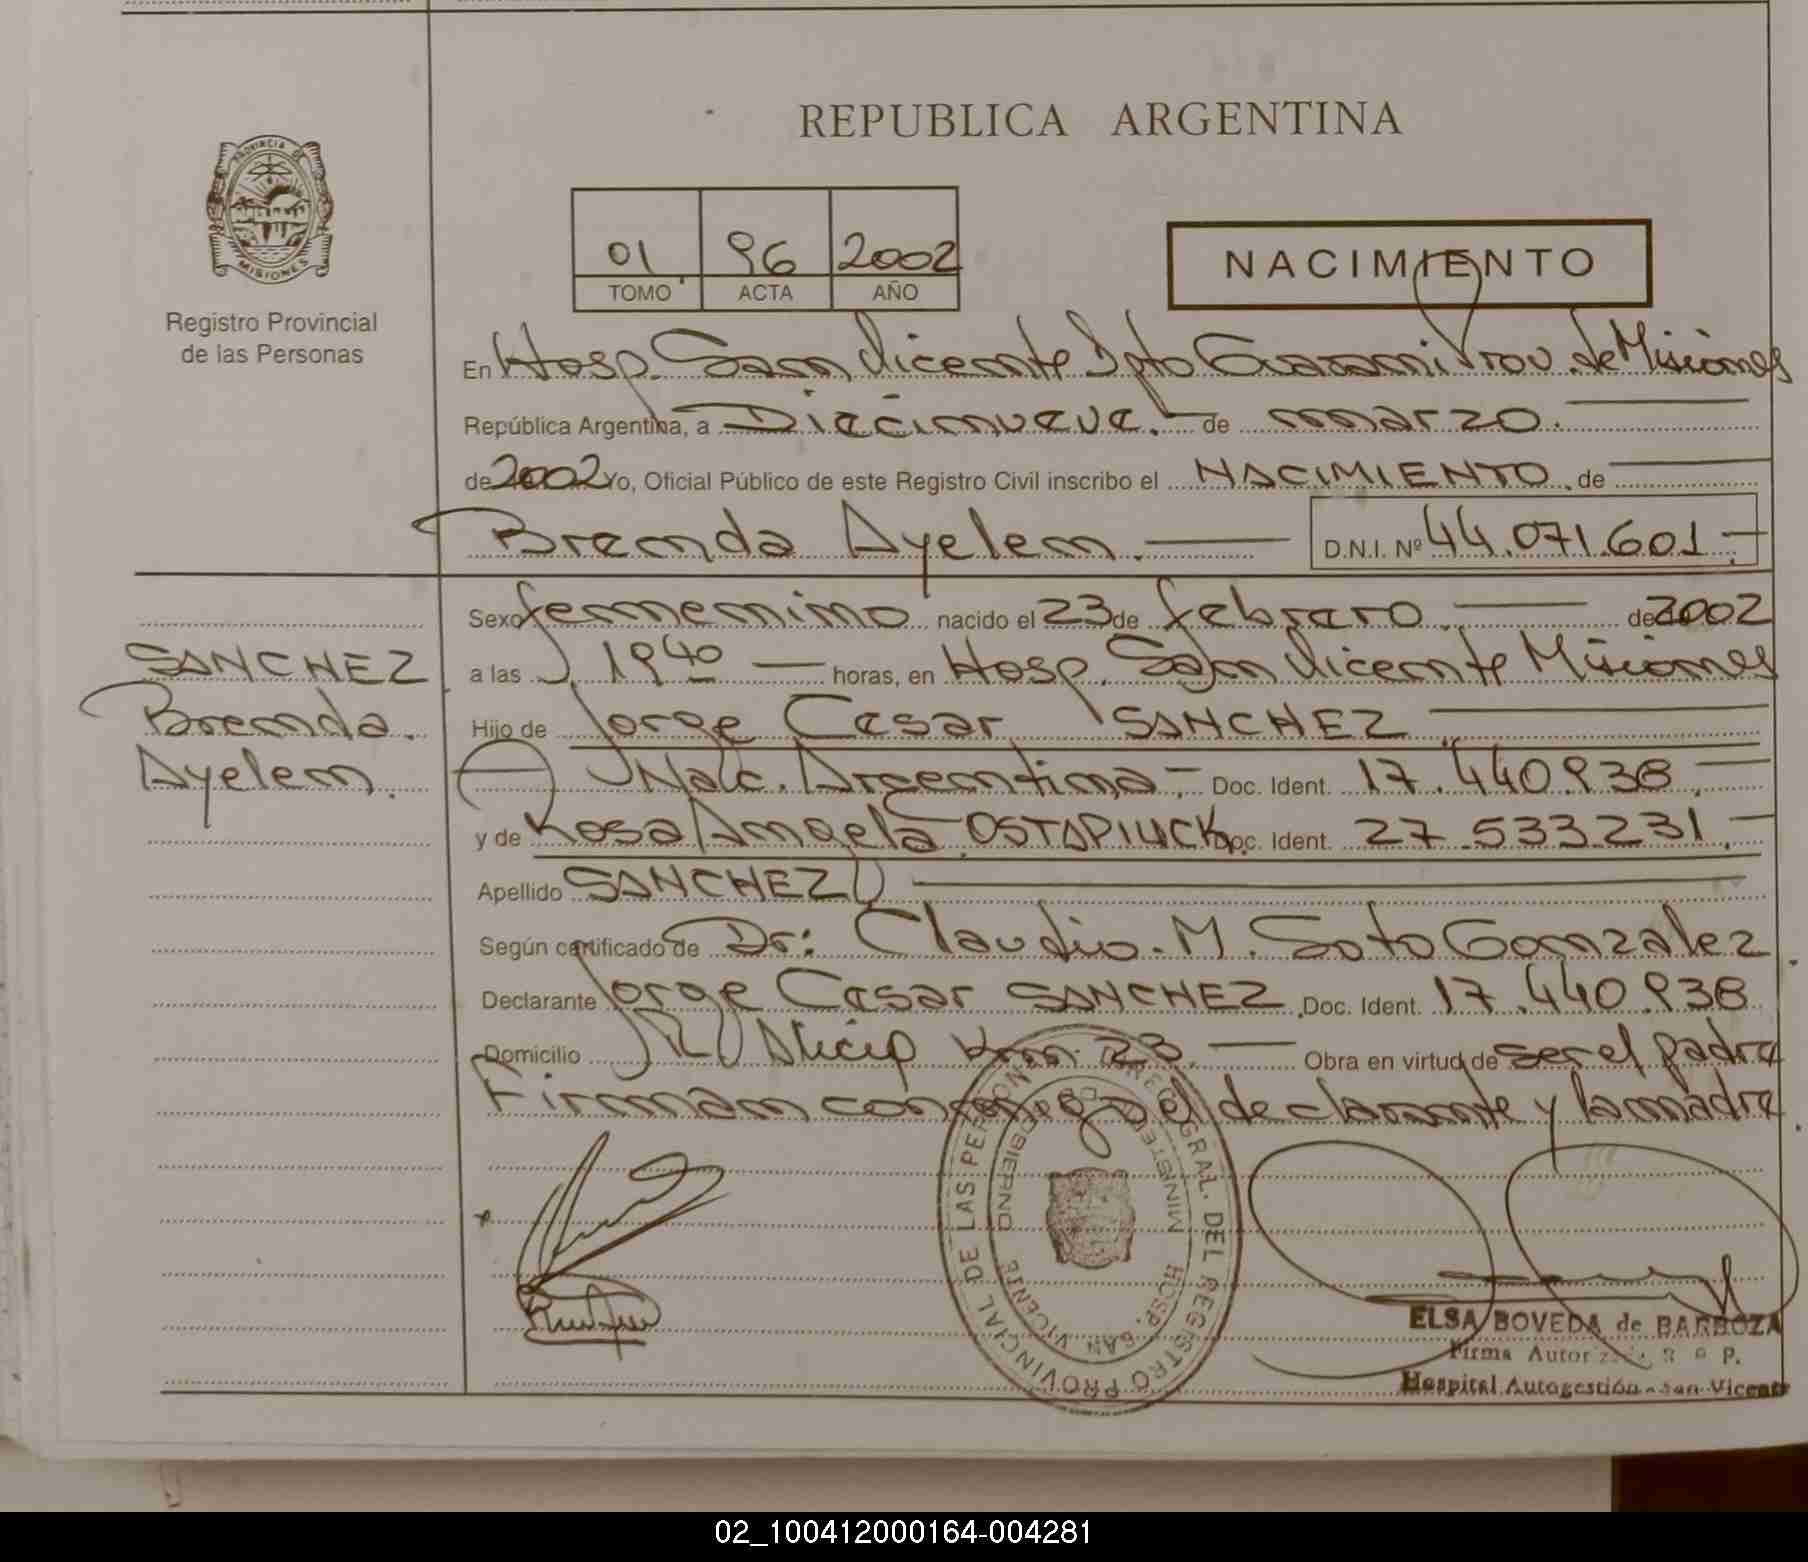 REPUBLICA ARGENTINA
PROVINCIA DE
MISIONES
Registro Provincial
de las Personas
01 96 2002
TOMO ACTA AÑO
NACIMIENTO
En Hosp. San Vicente Dpto Guarani Prov. de Misiones
República Argentina, a Diecinueve.- de marzo.
de 2002 Yo, Oficial Público de este Registro Civil inscribo el NACIMIENTO de
Brenda Ayelen. D.N.I. Nº 44.071.601.-
SANCHEZ
Brenda.
Ayelen.
Sexo femenino nacido el 23 de febrero. de 2002
a las 19 40 horas, en Hosp. San Vicente Misiones
Hijo de Jorge Cesar SANCHEZ
Nac. Argentina.- Doc. Ident. 17.440.938.
y de Rosa Angela OSTAPIUCK. Doc. Ident. 27.533.231.-
Apellido SANCHEZ
Según certificado de Dr: Claudio. M. Soto Gonzalez.
Declarante Jorge Cesar SANCHEZ. Doc. Ident. 17.440.938
Domicilio Alicia Km. 23. Obra en virtud de ser el padre
Firman conmigo el declarante y la madre.
REGISTRO PROVINCIAL DE LAS PERSONAS
GRAL. DEL
MINISTERIO
GOBIERNO
HOSP. SAN VICENTE
ELSA BOVEDA de BARBOZA
Firma Autorizada R. P. P.
Hospital Autogestión - San Vicente
02_100412000164-004281